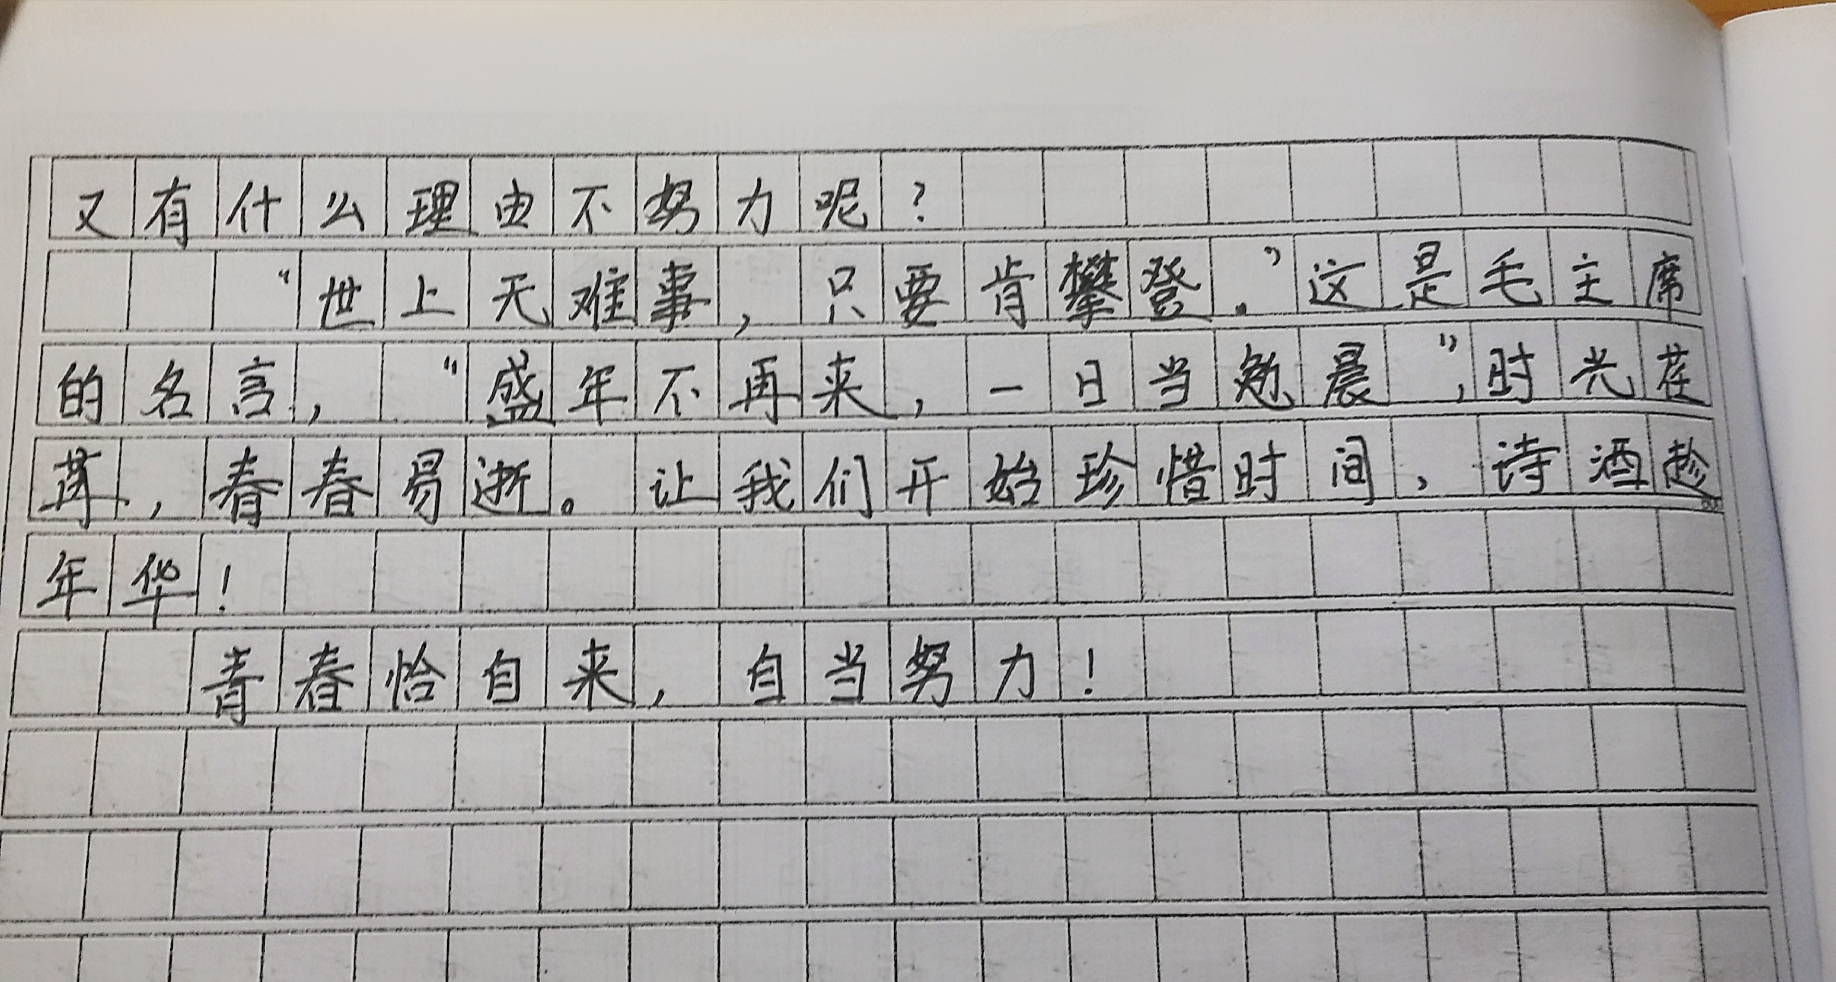 又有什么理由不努力呢?
“世上无难事,只要肯攀登.”这是毛主席
的名言,“盛年不再来,一日当勉晨”,时光荏
苒,春春易逝。让我们开始珍惜时间,诗酒趁
年华!
青春恰自来,自当努力!